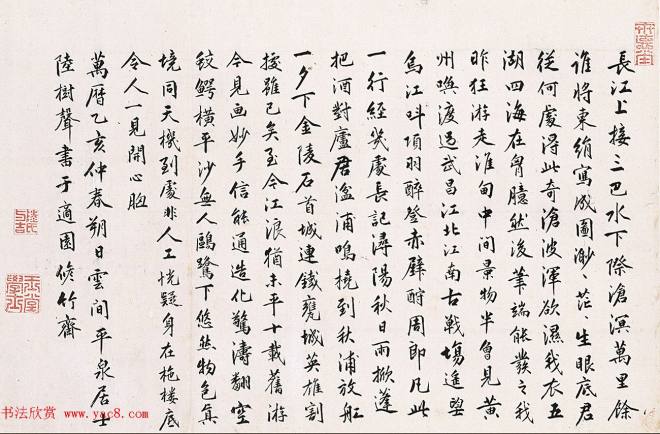 長江上接三巴水下際滄溟萬里餘
誰將東絹寫成圖渺〻茫〻生眼底君
從何處得此奇滄波渾欲濕我衣五
湖四海在胷臆然後筆端能發之我
昨狂游走淮甸中間景物半曾見黄
州喚渡過武昌江北江南古戰場遥望
烏江吽項羽醉登赤壁酹周郎凡此
一行經㡬處長記潯陽秋日雨掀蓬
把酒對廬君湓浦鳴橈到秋浦放舡
一夕下金陵石首城連鐵甕城英雄割
據雖已矣至今江浪猶未平十載舊游
今見画妙手信能通造化驚濤翻空
蛟鰐橫平沙無人鷗鷺下悠然物色真
境同天機到處非人工恍疑身在柂楼底
令人一見開心胷
萬曆乙亥仲春朔日雲間平泉居士
陸樹聲書于適園脩竹齋
书法欣赏 www.yac8.com